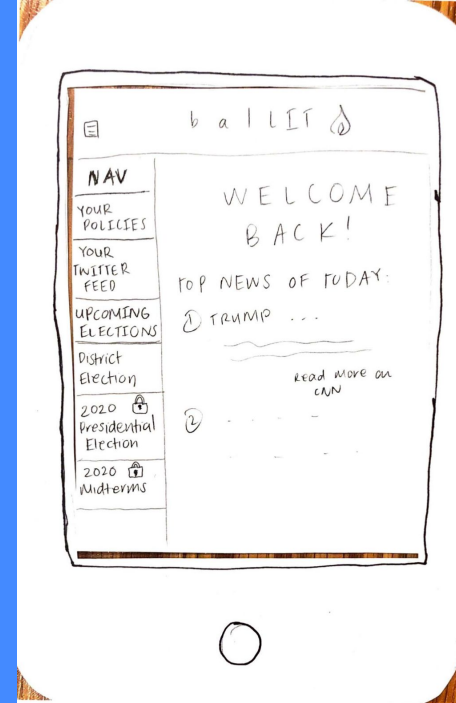 balLIT
NAV
YOUR
POLICIES
YOUR
TWITTER
FEED
UPCOMING
ELECTIONS
District
Election
2020
Presidential
Election
2020
Midterms
WELCOME
BACK!
TOP NEWS OF TODAY:
① TRUMP ...
Read More on
CNN
②